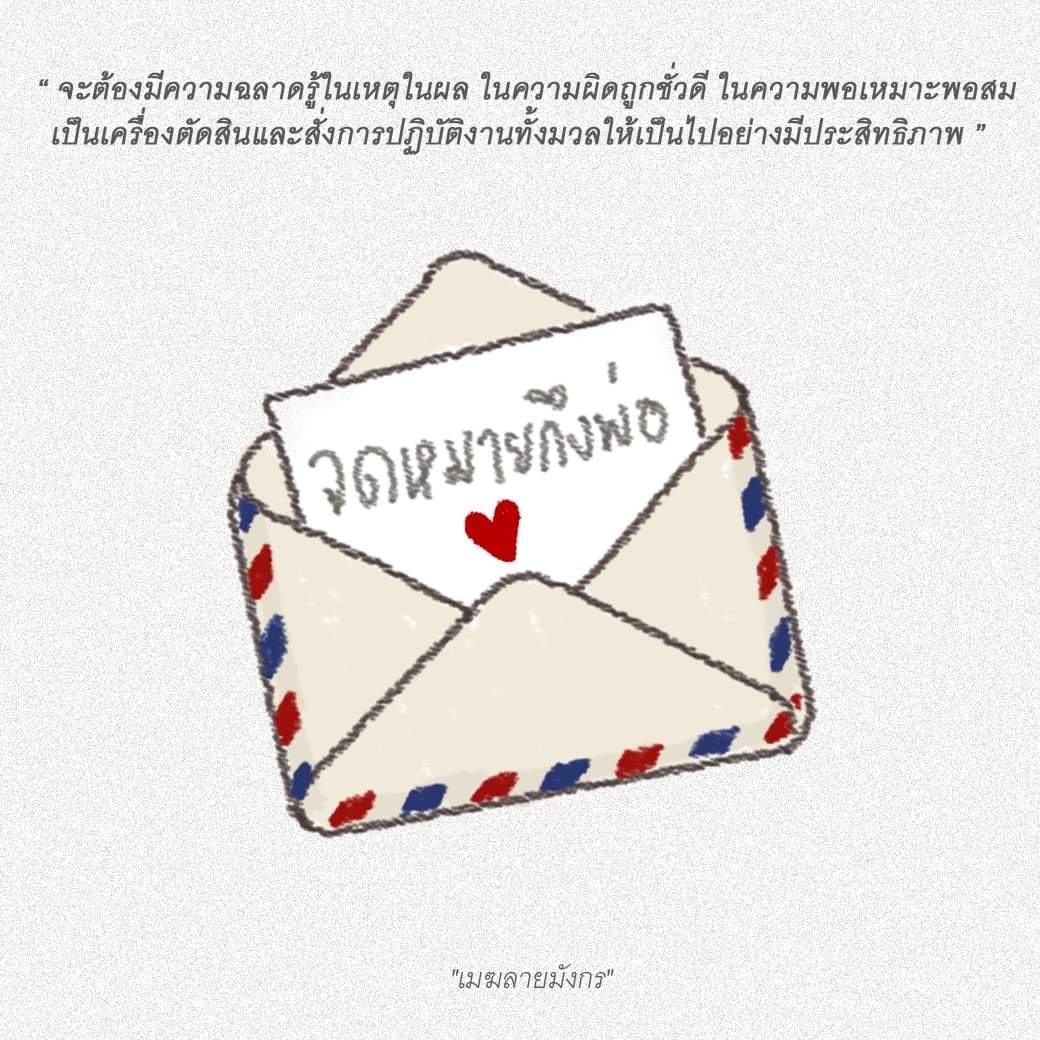 “ จะต้องมีความฉลาดรู้ในเหตุในผล ในความผิดถูกชั่วดี ในความพอเหมาะพอสม
เป็นเครื่องตัดสินและสั่งการปฏิบัติงานทั้งมวลให้เป็นไปอย่างมีประสิทธิภาพ ”
จดหมายถึงพ่อ
"เมฆลายมังกร"